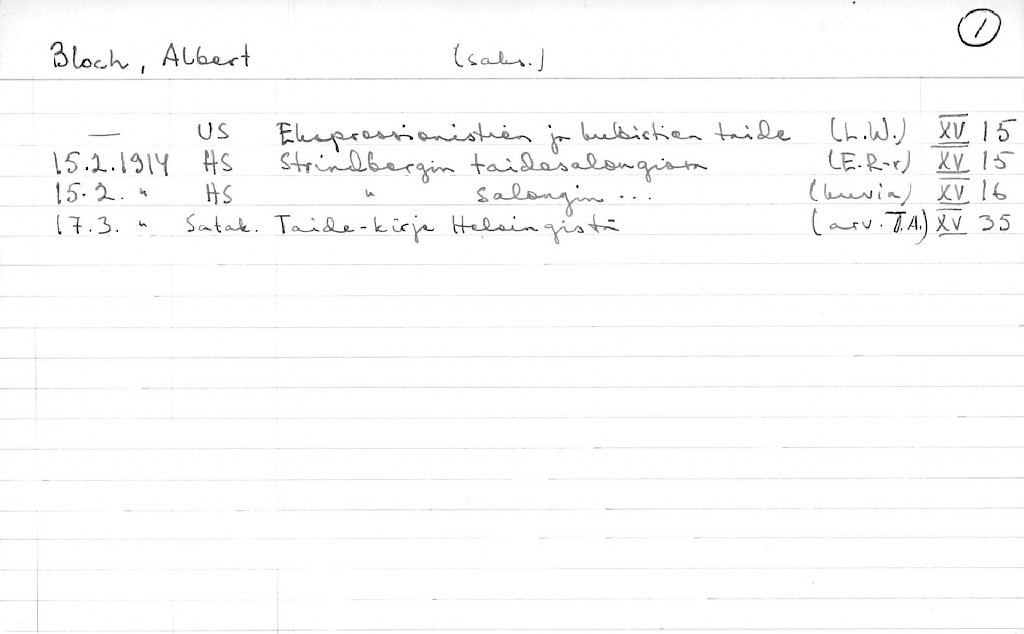 1
Bloch, Albert (saks.)
— US Ekspressionistien ja kubistien taide (L.W.) XV 15
15.2.1914 HS Strindbergin taidesalongissa (E.R-r) XV 15
15.2. " HS " salongin ... (kuvia) XV 16
17.3. " Satak. Taide-kirje Helsingistä (arv. T.A.) XV 35